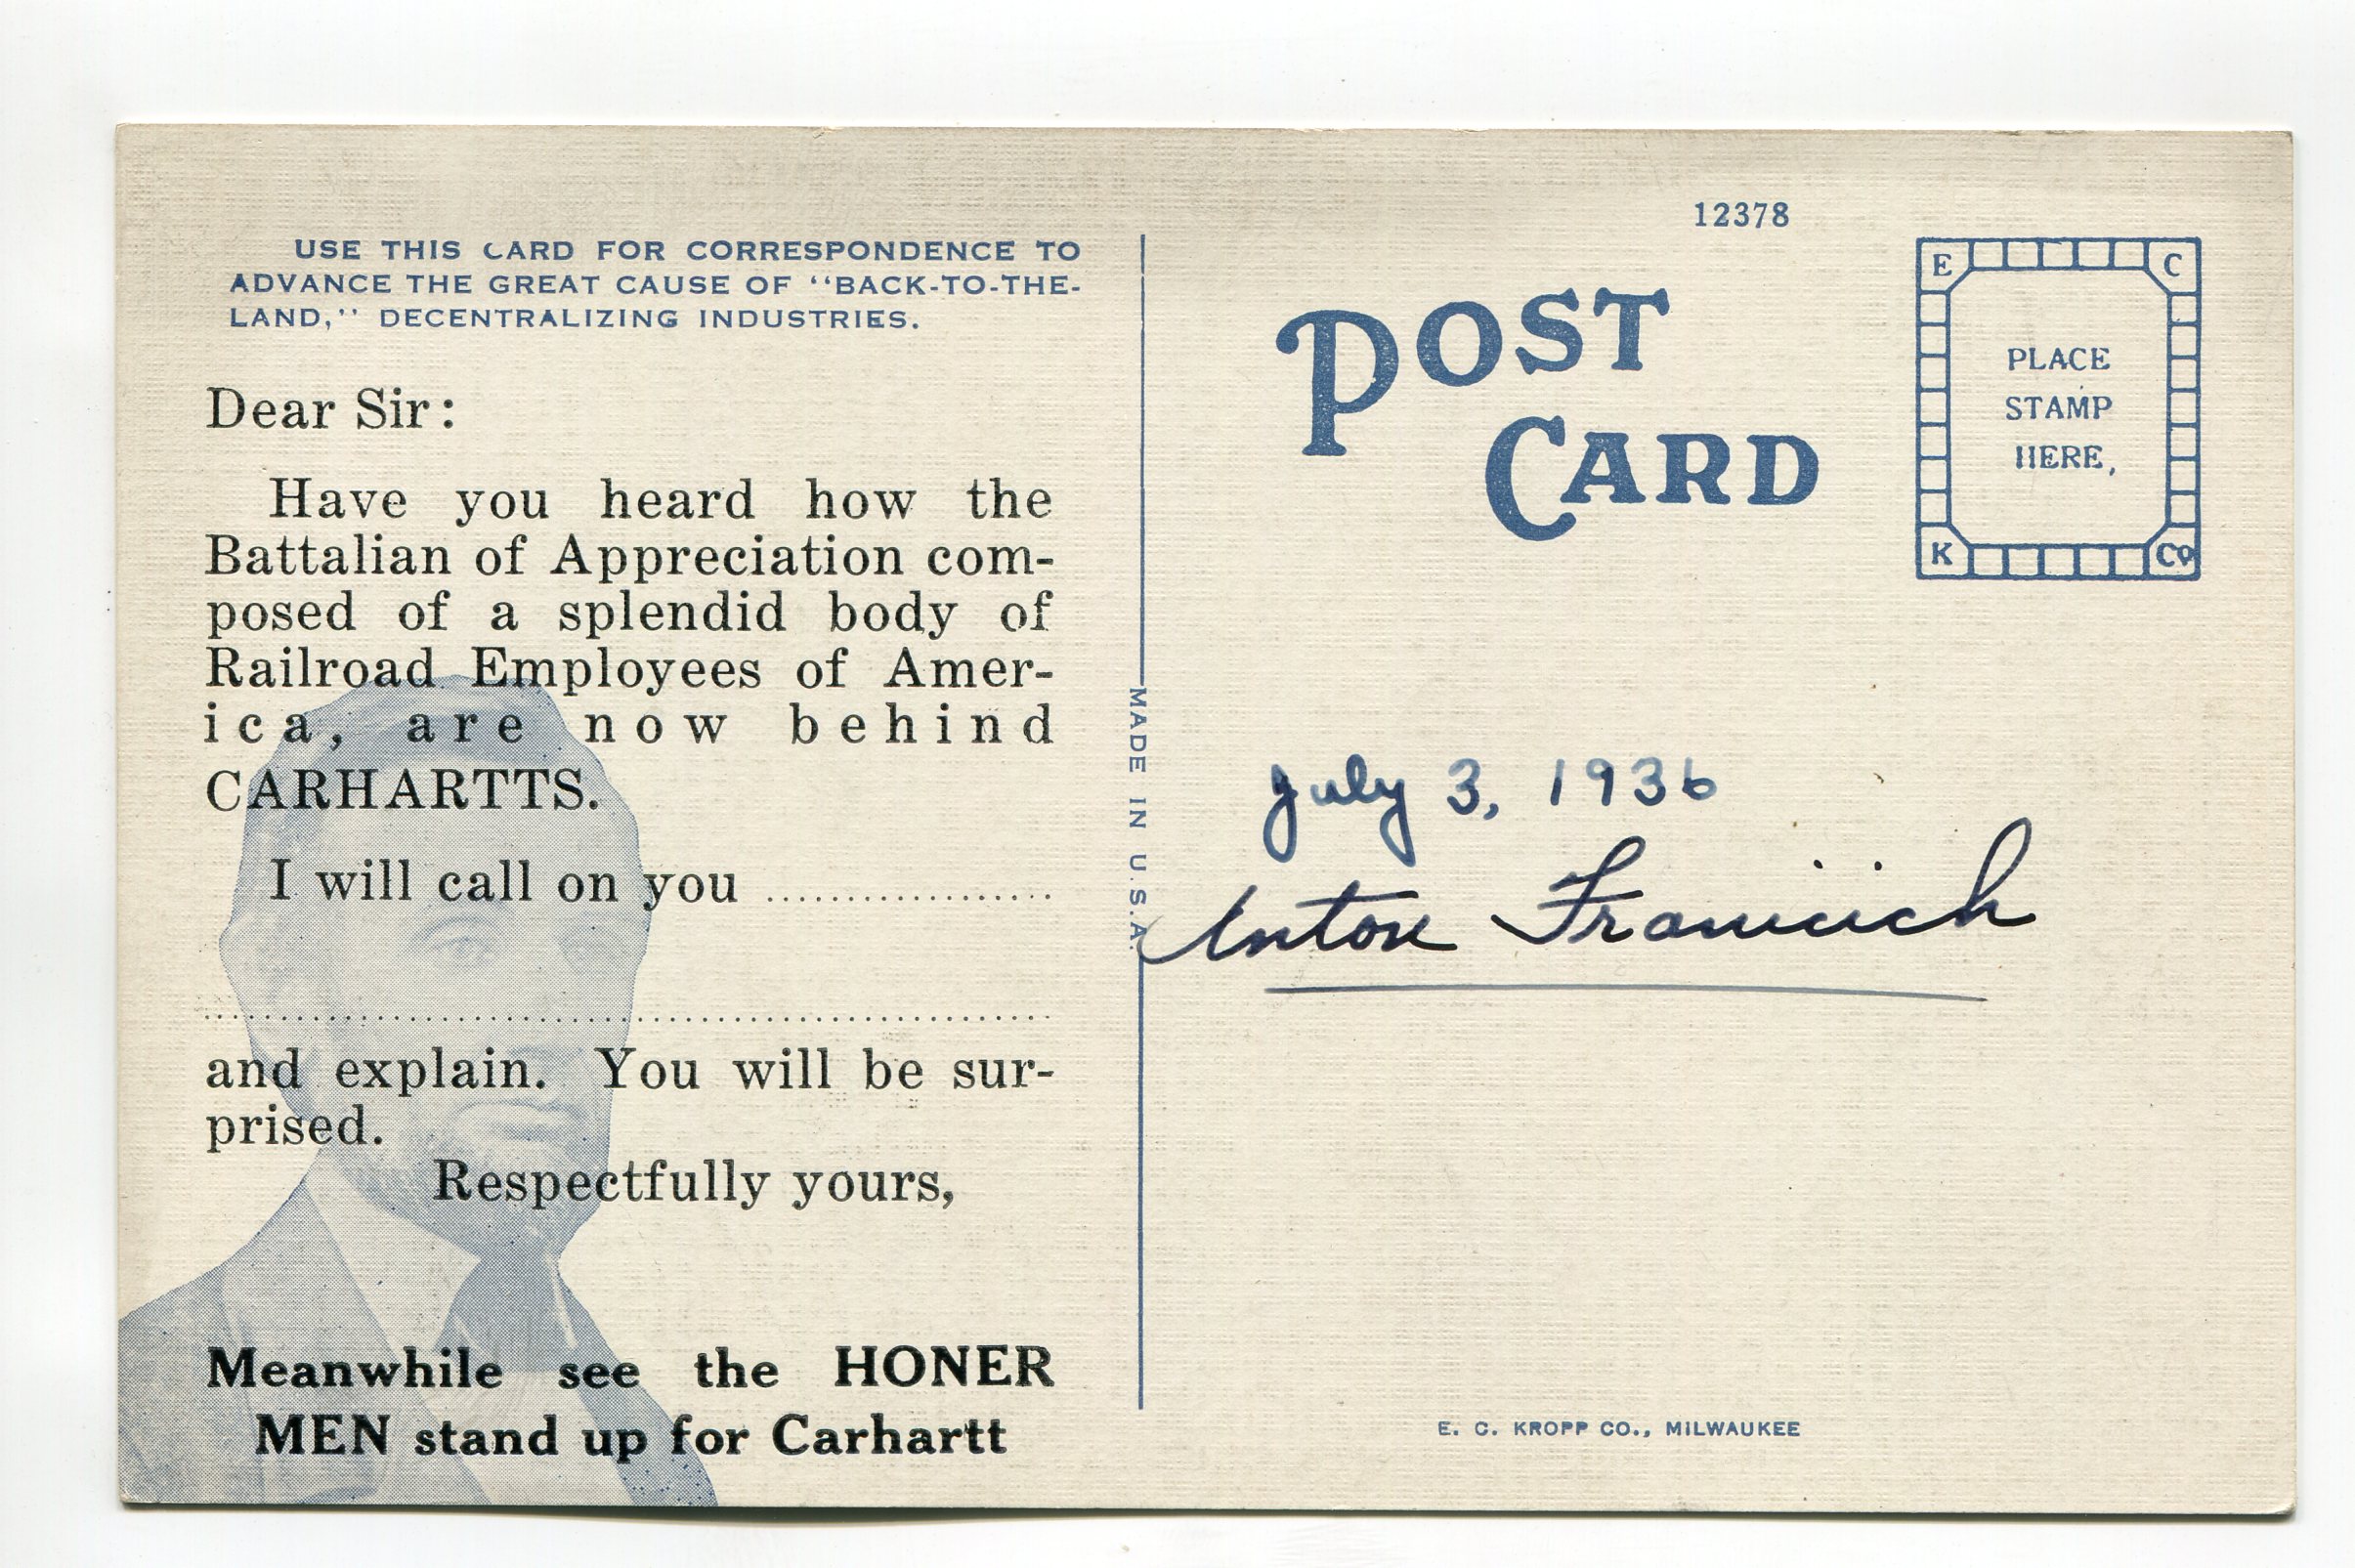 USE THIS CARD FOR CORRESPONDENCE TO
ADVANCE THE GREAT CAUSE OF "BACK-TO-THE-
LAND," DECENTRALIZING INDUSTRIES.
Dear Sir:
Have you heard how the
Battalian of Appreciation com-
posed of a splendid body of
Railroad Employees of Amer-
ica, are now behind
CARHARTTS.
I will call on you ..................
......................................................
and explain. You will be sur-
prised.
Respectfully yours,
Meanwhile see the HONER
MEN stand up for Carhartt
MADE IN U.S.A.
12378
POST
CARD
E C
PLACE
STAMP
HERE,
K Co
July 3, 1936
Anton
E. C. KROPP CO., MILWAUKEE